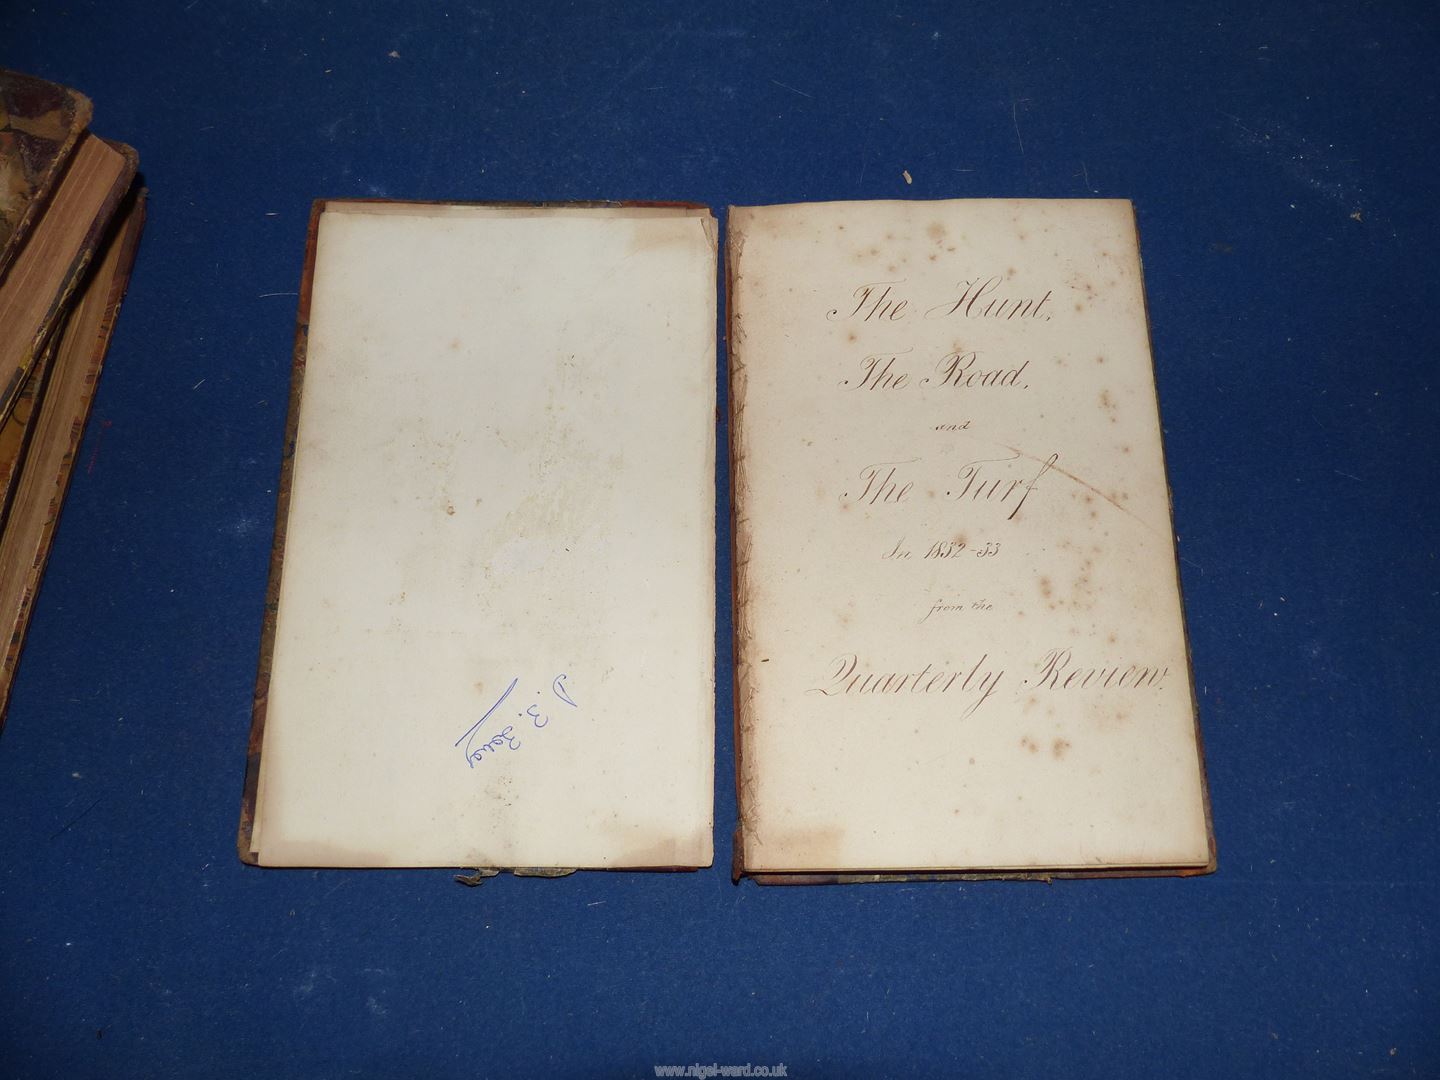 The Hunt,
The Road,
and
The Turf
In 1832-33
from the
Quarterly Review.
www.nigel-ward.co.uk